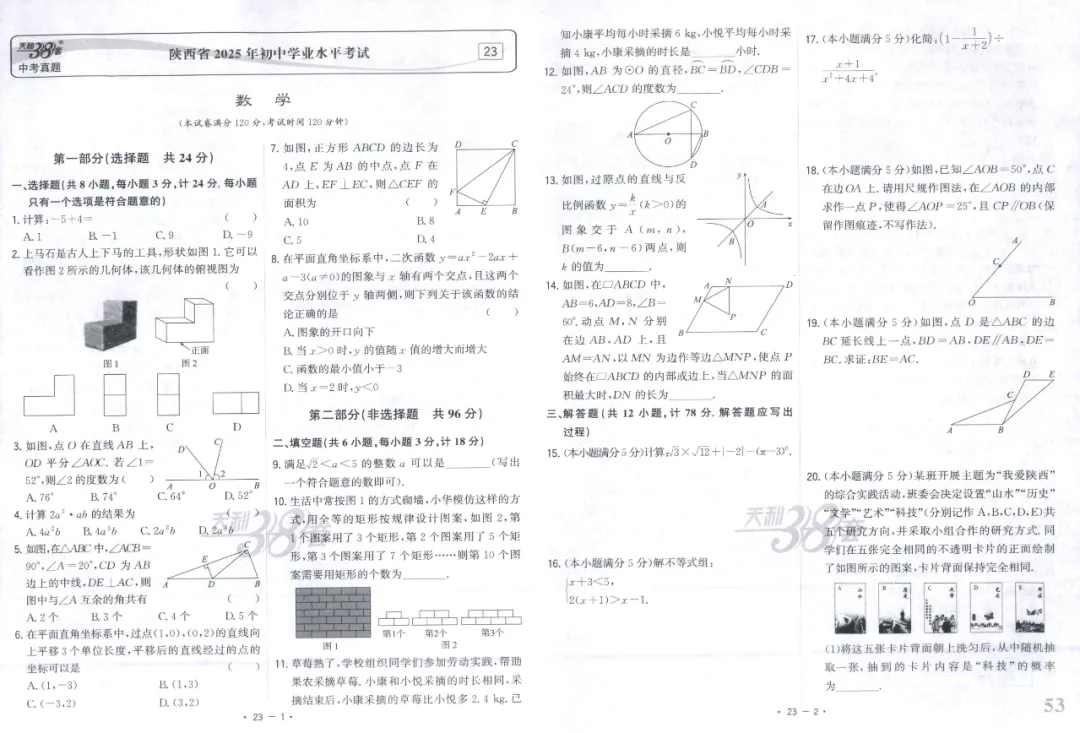 天利38套
中考真题
陕西省 2025 年初中学业水平考试
23
数 学
(本试卷满分 120 分,考试时间 120 分钟)
第一部分(选择题 共 24 分)
一、选择题(共 8 小题,每小题 3 分,计 24 分. 每小题
只有一个选项是符合题意的)
1. 计算:-5+4= ( )
A. 1 B. -1 C. 9 D. -9
2. 上马石是古人上下马的工具,形状如图 1. 它可以
看作图 2 所示的几何体,该几何体的俯视图为
( )
正面
图 1 图 2
A B C D
3. 如图,点 O 在直线 AB 上,
OD 平分∠AOC. 若∠1=
52°,则∠2 的度数为 ( )
D C
1 2
A O B
A. 76° B. 74° C. 64° D. 52°
4. 计算 2a²·ab 的结果为 ( )
A. 4a²b B. 4a³b C. 2a²b D. 2a³b
5. 如图,在△ABC 中,∠ACB=
90°,∠A=20°,CD 为 AB
边上的中线,DE⊥AC,则
图中与∠A 互余的角共有 ( )
C
E
A D B
A. 2 个 B. 3 个 C. 4 个 D. 5 个
6. 在平面直角坐标系中,过点(1,0),(0,2)的直线向
上平移 3 个单位长度,平移后的直线经过的点的
坐标可以是 ( )
A. (1,-3) B. (1,3)
C. (-3,2) D. (3,2)
7. 如图,正方形 ABCD 的边长为
4,点 E 为 AB 的中点,点 F 在
AD 上,EF⊥EC,则△CEF 的
面积为 ( )
A. 10 B. 8
C. 5 D. 4
D C
F
A E B
8. 在平面直角坐标系中,二次函数 y=ax²-2ax+
a-3(a≠0)的图象与 x 轴有两个交点,且这两个
交点分别位于 y 轴两侧,则下列关于该函数的结
论正确的是 ( )
A. 图象的开口向下
B. 当 x>0 时,y 的值随 x 值的增大而增大
C. 函数的最小值小于-3
D. 当 x=2 时,y<0
第二部分(非选择题 共 96 分)
二、填空题(共 6 小题,每小题 3 分,计 18 分)
9. 满足√2<a<5 的整数 a 可以是______(写出
一个符合题意的数即可).
10. 生活中常按图 1 的方式砌墙,小华模仿这样的方
式,用全等的矩形按规律设计图案,如图 2,第
1 个图案用了 3 个矩形,第 2 个图案用了 5 个矩
形,第 3 个图案用了 7 个矩形……则第 10 个图
案需要用矩形的个数为______.
第1个 第2个 第3个
图 1 图 2
11. 草莓熟了,学校组织同学们参加劳动实践,帮助
果农采摘草莓. 小康和小悦采摘的时长相同,采
摘结束后,小康采摘的草莓比小悦多 2.4 kg. 已
· 23 - 1 ·
知小康平均每小时采摘 6 kg,小悦平均每小时采
摘 4 kg,小康采摘的时长是______小时.
12. 如图,AB 为⊙O 的直径,BC=BD,∠CDB=
24°,则∠ACD 的度数为______.
C
A O B
D
13. 如图,过原点的直线与反
比例函数 y=k/x(k>0)的
图象交于 A(m,n),
B(m-6,n-6)两点,则
k 的值为______.
y
A
O x
B
14. 如图,在□ABCD 中,
AB=6,AD=8,∠B=
60°. 动点 M,N 分别
在边 AB,AD 上,且
A N D
M
P
B C
AM=AN,以 MN 为边作等边△MNP,使点 P
始终在□ABCD 的内部或边上,当△MNP 的面
积最大时,DN 的长为______.
三、解答题(共 12 小题,计 78 分. 解答题应写出
过程)
15. (本小题满分 5 分)计算:√3×√12+|-2|-(π-3)⁰.
16. (本小题满分 5 分)解不等式组:
{x+3<5,
2(x+1)>x-1.
17. (本小题满分 5 分)化简:(1-1/(x+2))÷
(x+1)/(x²+4x+4).
18. (本小题满分 5 分)如图,已知∠AOB=50°,点 C
在边 OA 上. 请用尺规作图法,在∠AOB 的内部
求作一点 P,使得∠AOP=25°,且 CP∥OB(保
留作图痕迹,不写作法).
A
C
O B
19. (本小题满分 5 分)如图,点 D 是△ABC 的边
BC 延长线上一点,BD=AB,DE∥AB,DE=
BC. 求证:BE=AC.
D E
C
A B
20. (本小题满分 5 分)某班开展主题为“我爱陕西”
的综合实践活动,班委会决定设置“山水”“历史”
“文学”“艺术”“科技”(分别记作 A,B,C,D,E)共
五个研究方向,并采取小组合作的研究方式. 同
学们在五张完全相同的不透明卡片的正面绘制
了如图所示的图案,卡片背面保持完全相同.
A 山水 B 历史 C 文学 D 艺术 E 科技
(1)将这五张卡片背面朝上洗匀后,从中随机抽
取一张,抽到的卡片内容是“科技”的概率
为______.
· 23 - 2 ·
53
天利38套
天利38套